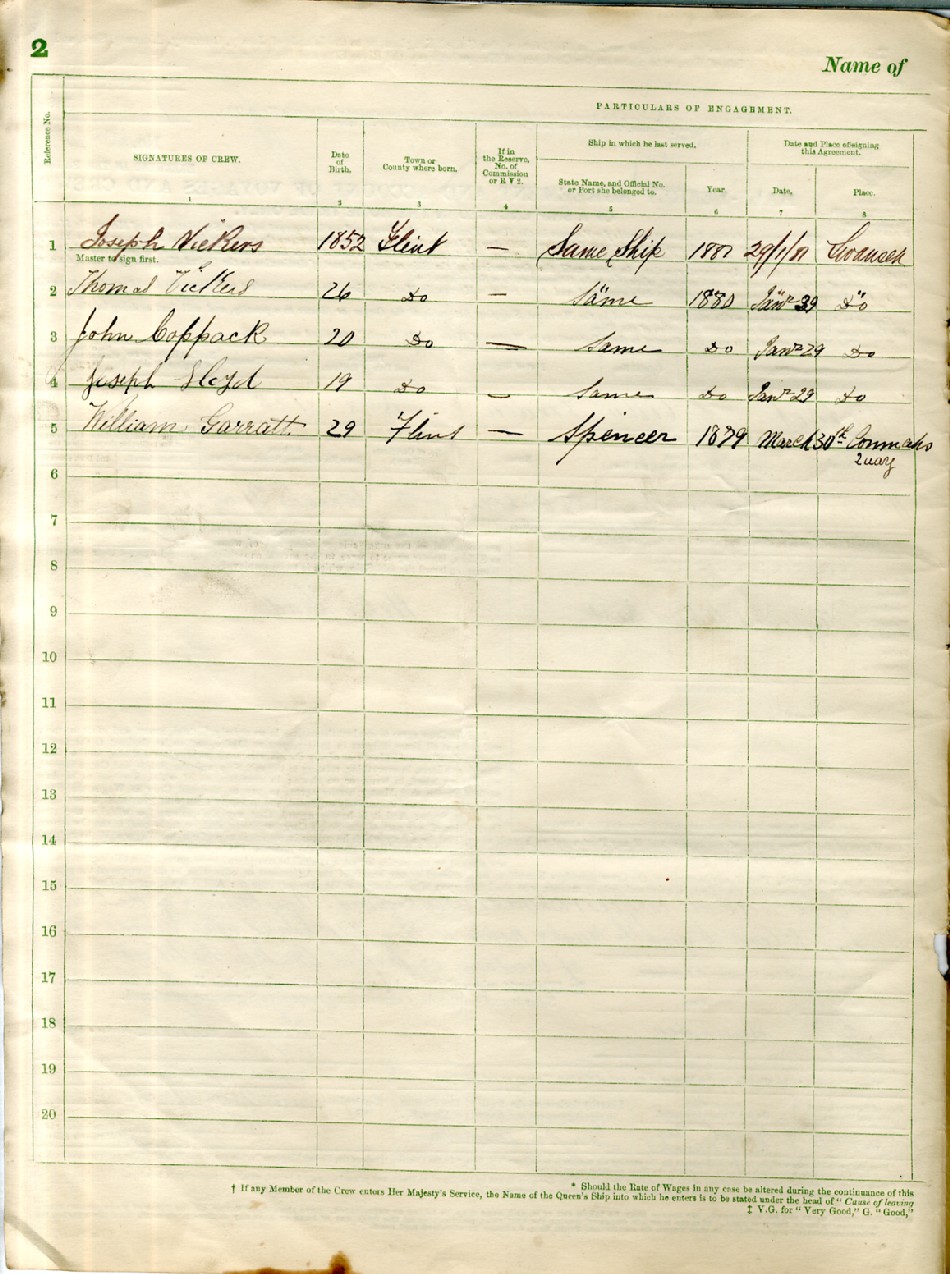 2
Name of
PARTICULARS OF ENGAGEMENT.
Reference No.
SIGNATURES OF CREW.
Date of Birth.
Town or County where born.
If in the Reserve, No. of Commission or R V 2.
Ship in which he last served.
Date and Place of signing this Agreement.
State Name, and Official No. or Port she belonged to.
Year.
Date.
Place.
1 2 3 4 5 6 7 8
1 Joseph Vickers 1852 Flint — Same Ship 1881 29/1/81 Swansea
Master to sign first.
2 Thomas Vickers 26 Do — Same 1880 Do
3 John Coppack 20 Do — Same Do Jany 29 Do
4 Joseph Lloyd 19 Do — Same Do Jany 29 Do
5 William Garratt 29 Flint — Spencer 1879 March 30th Connahs
Quay
6
7
8
9
10
11
12
13
14
15
16
17
18
19
20
* Should the Rate of Wages in any case be altered during the continuance of this
† If any Member of the Crew enters Her Majesty's Service, the Name of the Queen's Ship into which he enters is to be stated under the head of "Cause of leaving
‡ V.G. for "Very Good," G. "Good,"